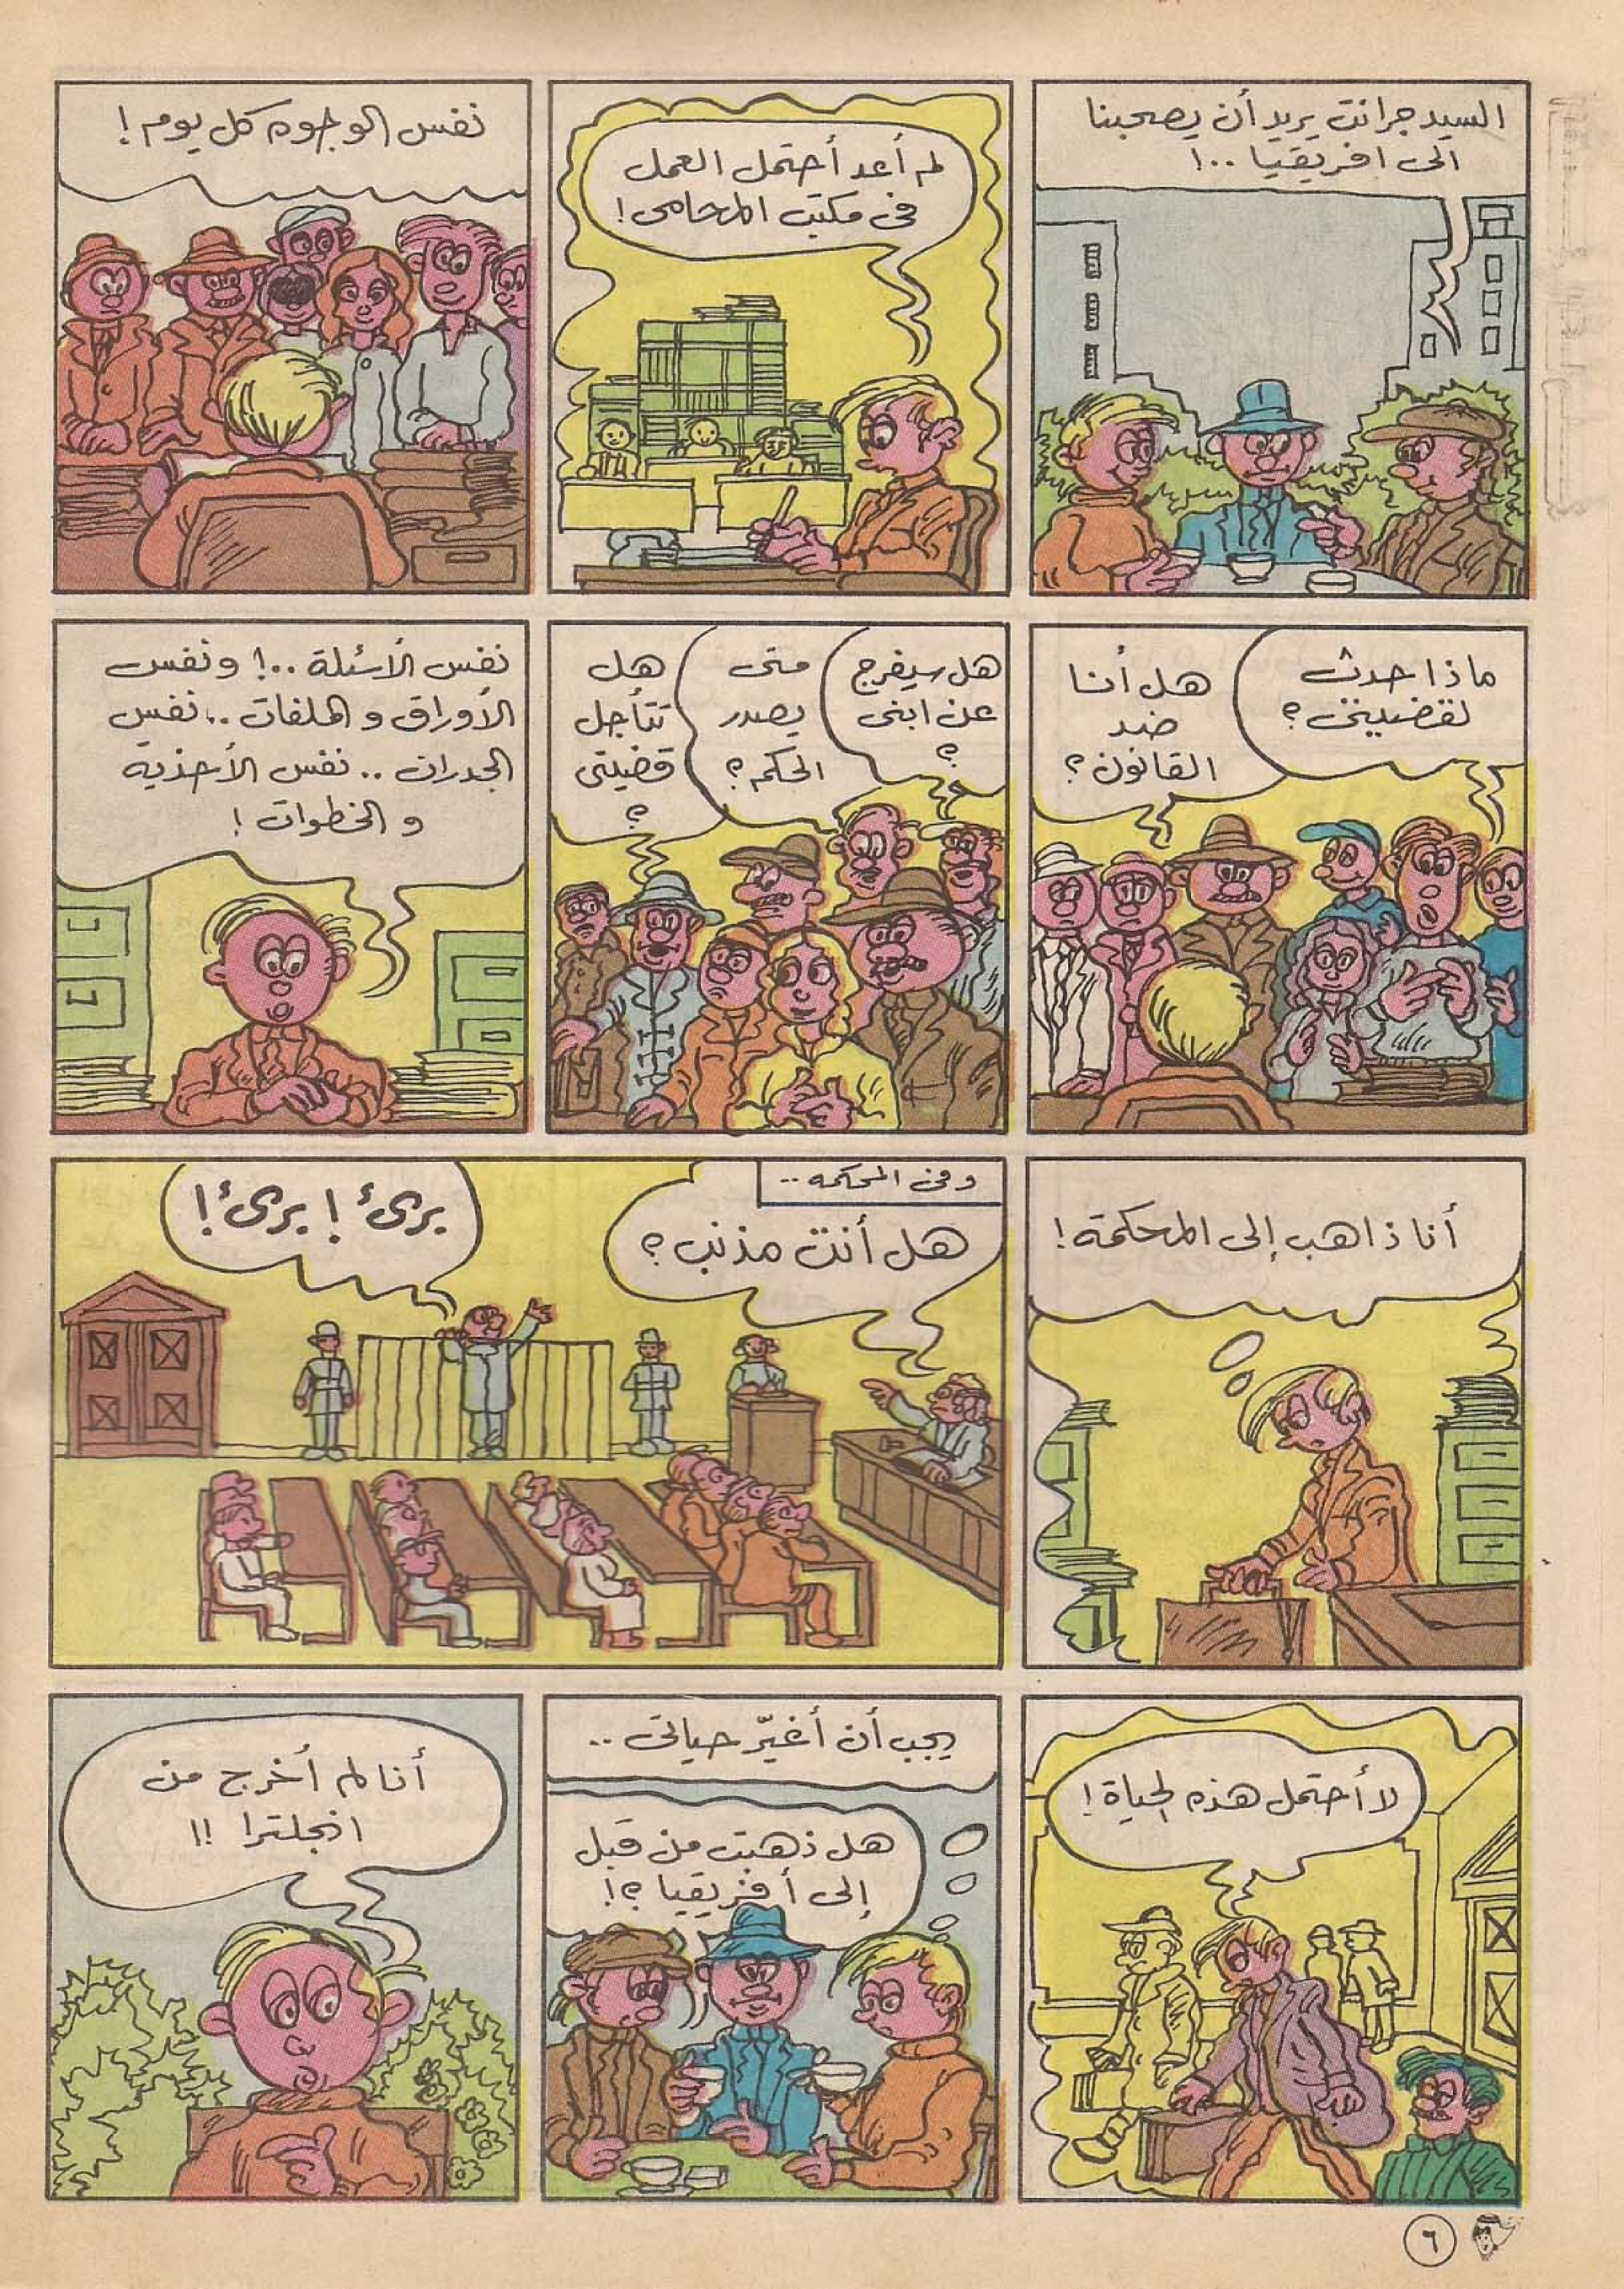 السيد جرانت يريد أن يصحبنا
الى افريقيا ..!
لم أعد أحتمل العمل
فى مكتب المحامى!
نفس الوجوه كل يوم!
ماذا حدث
لقضيتى؟
هل أنا
ضد
القانون؟
هل سيفرج
عن ابنى
؟
متى
يصدر
الحكم؟
هل
تتأجل
قضيتى
؟
نفس الأسئلة ..! ونفس
الأوراق والملفات .. نفس
الجدران .. نفس الأحذية
والخطوات!
أنا ذاهب إلى المحكمة!
وفى المحكمه ..
هل أنت مذنب؟
برىء! برىء!
لا أحتمل هذه الحياة!
يجب أن أغيّر حياتى ..
هل ذهبت من قبل
إلى أفريقيا؟!
أنا لم أخرج من
انجلترا !!
٦